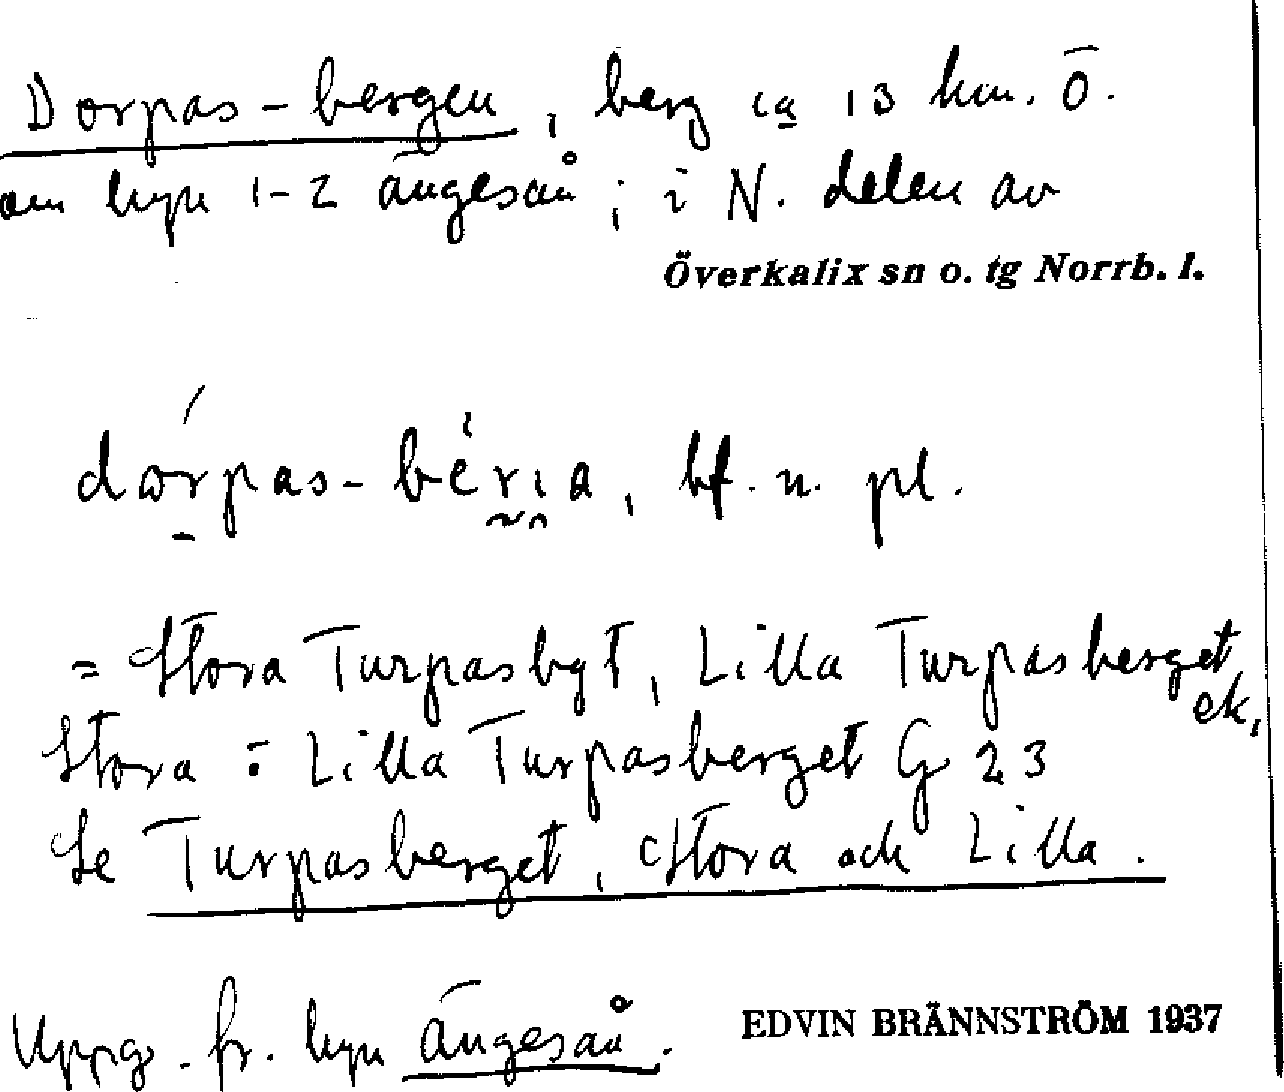 Dorpas-bergen, berg ca 13 km. Ö.
om byn 1-2 Ängesån; i N. delen av
Överkalix sn o. tg Norrb. l.
dorpas-béria, bf. n. pl.
= Stora Turpasbgt, Lilla Turpasberget ek,
Stora o Lilla Turpasberget G 23
Se Turpasberget, Stora och Lilla.
Uppg. fr. byn Ängesån.
EDVIN BRÄNNSTRÖM 1937